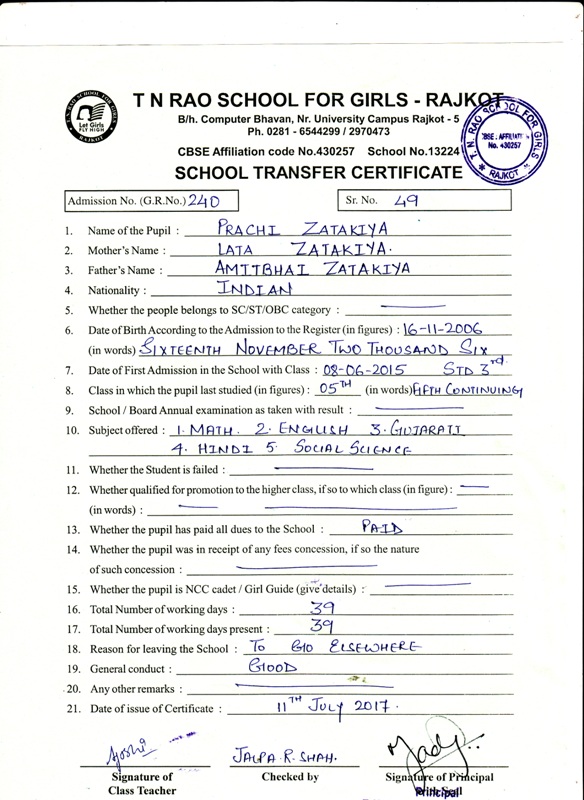 T N RAO SCHOOL FOR GIRLS - RAJKOT
B/h. Computer Bhavan, Nr. University Campus Rajkot - 5
Ph. 0281 - 6544299 / 2970473
CBSE Affiliation code No.430257 School No.13224
SCHOOL TRANSFER CERTIFICATE
T. N. RAO SCHOOL FOR GIRLS
Let Girls
FLY HIGH
RAJKOT
T. N. RAO SCHOOL FOR GIRLS
CBSE : AFFILIATI
No. 430257
RAJKOT
Admission No. (G.R.No.) 240 Sr. No. 49
1. Name of the Pupil : PRACHI ZATAKIYA
2. Mother's Name : LATA ZATAKIYA.
3. Father's Name : AMITBHAI ZATAKIYA
4. Nationality : INDIAN
5. Whether the people belongs to SC/ST/OBC category :
6. Date of Birth According to the Admission to the Register (in figures) : 16-11-2006
(in words) SIXTEENTH NOVEMBER TWO THOUSAND SIX
7. Date of First Admission in the School with Class : 08-06-2015 STD 3rd.
8. Class in which the pupil last studied (in figures) : 05TH (in words) FIFTH CONTINUING
9. School / Board Annual examination as taken with result :
10. Subject offered : 1. MATH. 2. ENGLISH 3. GUJARATI
4. HINDI 5. SOCIAL SCIENCE
11. Whether the Student is failed :
12. Whether qualified for promotion to the higher class, if so to which class (in figure) :
(in words) :
13. Whether the pupil has paid all dues to the School : PAID
14. Whether the pupil was in receipt of any fees concession, if so the nature
of such concession :
15. Whether the pupil is NCC cadet / Girl Guide (give details) :
16. Total Number of working days : 39
17. Total Number of working days present : 39
18. Reason for leaving the School : TO GO ELSEWHERE
19. General conduct : GOOD
20. Any other remarks :
21. Date of issue of Certificate : 11TH JULY 2017.
JALPA.R.SHAH.
Signature of Checked by Signature of Principal
Class Teacher Principal